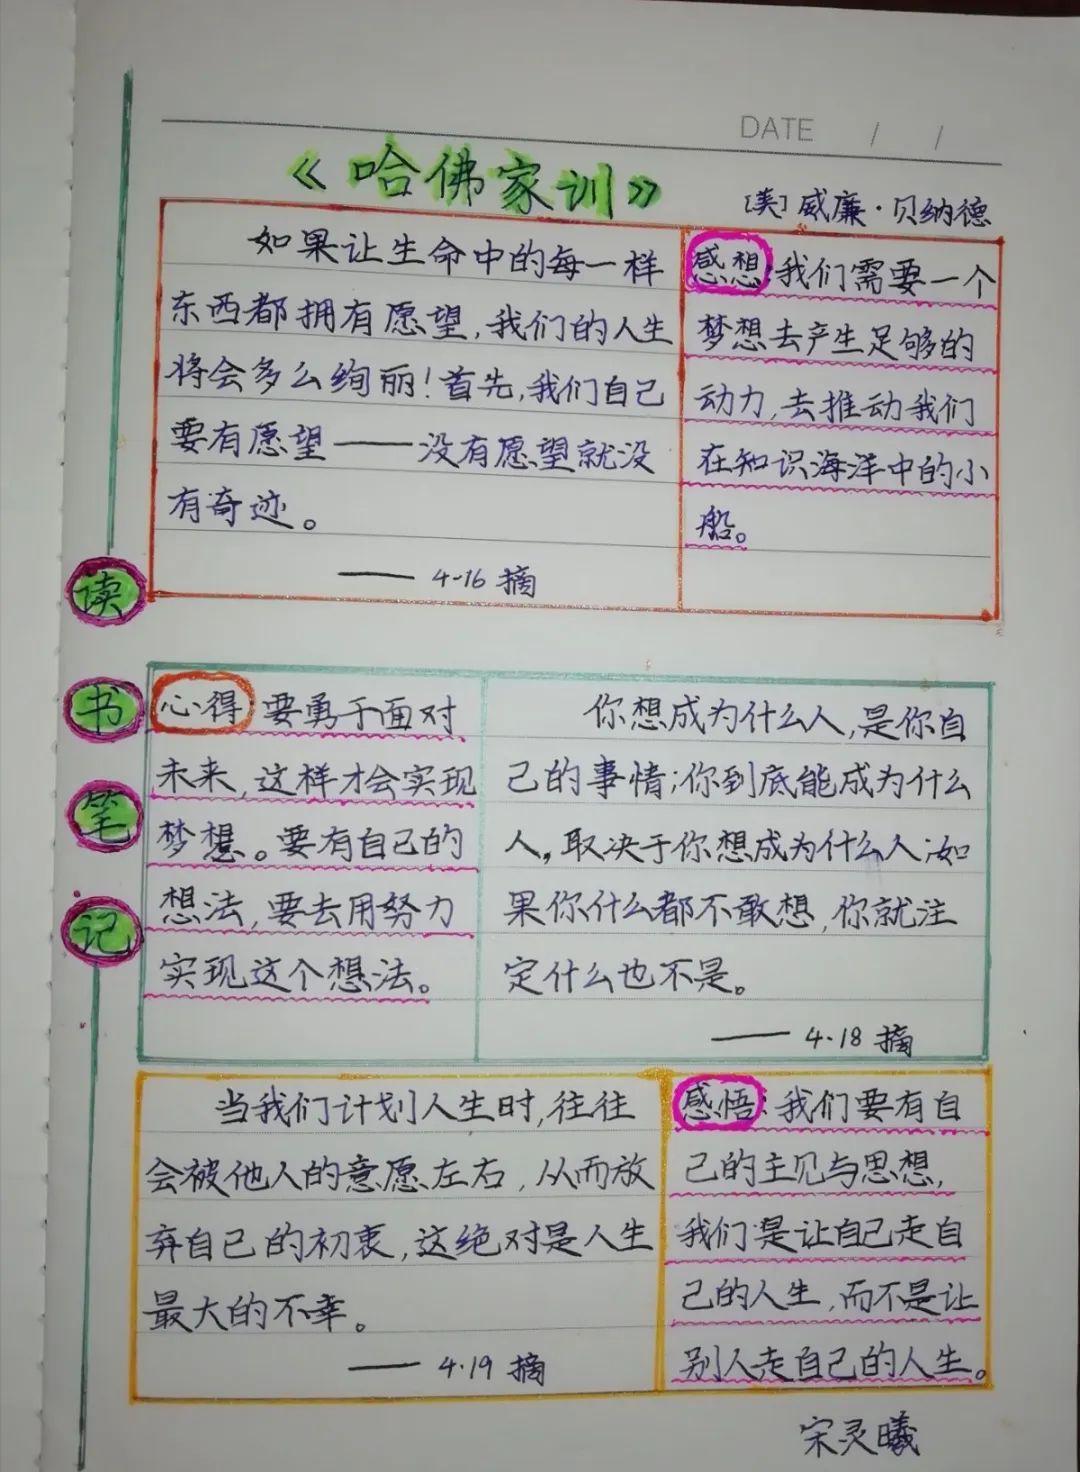 DATE / /
《哈佛家训》
[美]威廉·贝纳德
如果让生命中的每一样
东西都拥有愿望,我们的人生
将会多么绚丽!首先,我们自己
要有愿望——没有愿望就没
有奇迹。
—— 4-16 摘
感想:我们需要一个
梦想去产生足够的
动力,去推动我们
在知识海洋中的小
船。
读
书
笔
记
心得:要勇于面对
未来,这样才会实现
梦想。要有自己的
想法,要去用努力
实现这个想法。
你想成为什么人,是你自
己的事情;你到底能成为什么
人,取决于你想成为什么人;如
果你什么都不敢想,你就注
定什么也不是。
—— 4.18 摘
当我们计划人生时,往往
会被他人的意愿左右,从而放
弃自己的初衷,这绝对是人生
最大的不幸。
—— 4.19 摘
感悟:我们要有自
己的主见与思想,
我们是让自己走自
己的人生,而不是让
别人走自己的人生。
宋灵曦